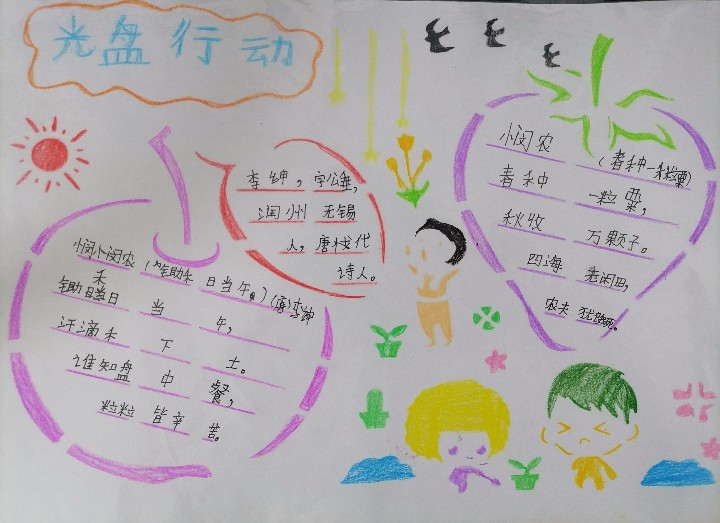 光盘行动
李绅，字公垂，
润州 无锡
人，唐代
诗人。
悯农 (锄禾日当午。)
锄禾日 当 午，
汗滴禾 下 土。
谁知盘 中 餐，
粒粒 皆辛 苦。
悯农 (春种一粒粟)
春种 一粒 粟，
秋收 万颗子。
四海 无闲田，
农夫 犹饿死。